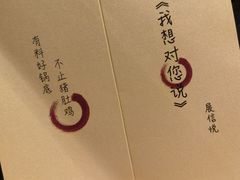 《我想对您说》
展信悦
不止猪肚鸡
有料好锅底